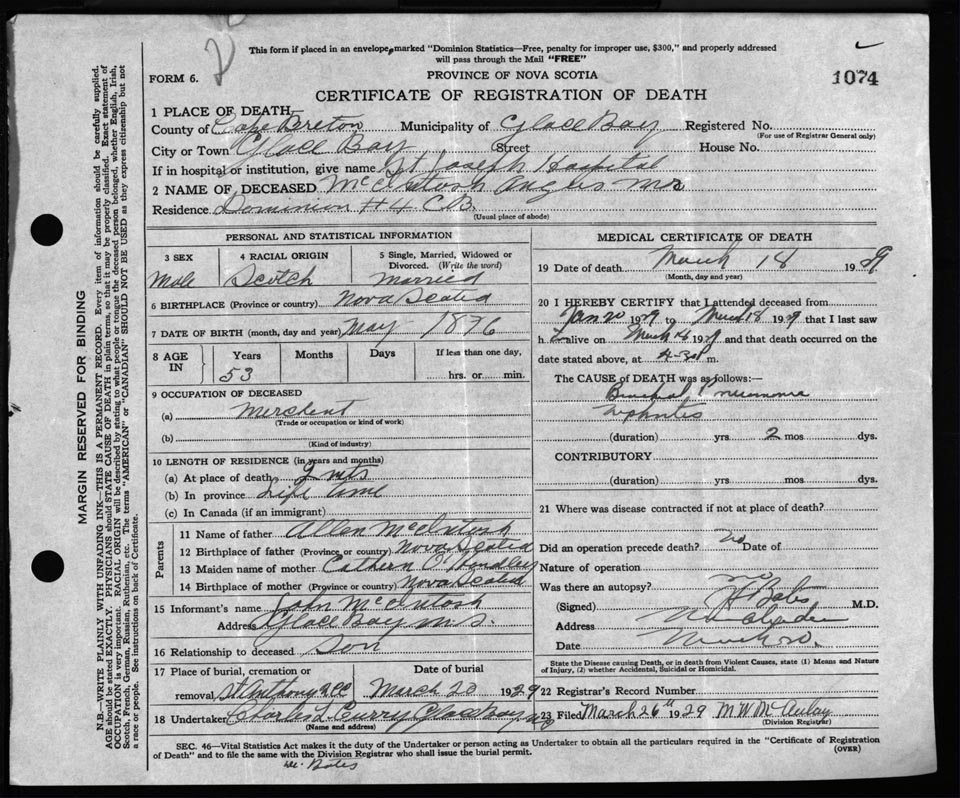 This form if placed in an envelope, marked "Dominion Statistics—Free, penalty for improper use, $300," and properly addressed
will pass through the Mail "FREE"
FORM 6.
PROVINCE OF NOVA SCOTIA
1074
CERTIFICATE OF REGISTRATION OF DEATH
1 PLACE OF DEATH—
County of Cape Breton Municipality of Glace Bay Registered No.
(For use of Registrar General only)
City or Town Glace Bay Street House No.
If in hospital or institution, give name St Joseph Hospital
2 NAME OF DECEASED McIntosh Angus
Residence Dominion #4 C.B.
(Usual place of abode)
PERSONAL AND STATISTICAL INFORMATION
3 SEX 4 RACIAL ORIGIN 5 Single, Married, Widowed or
Divorced. (Write the word)
Male Scotch Married
6 BIRTHPLACE (Province or country) Nova Scotia
7 DATE OF BIRTH (month, day and year) May 1876
8 AGE IN Years Months Days If less than one day,
53 hrs. or min.
9 OCCUPATION OF DECEASED
(a)
(Trade or occupation or kind of work)
(b)
(Kind of industry)
10 LENGTH OF RESIDENCE (in years and months)
(a) At place of death
(b) In province Life time
(c) In Canada (if an immigrant)
Parents
11 Name of father Allen McIntosh
12 Birthplace of father (Province or country) Nova Scotia
13 Maiden name of mother Cathern O'Handley
14 Birthplace of mother (Province or country) Nova Scotia
15 Informant's name John McIntosh
Address Glace Bay N.S.
16 Relationship to deceased Son
17 Place of burial, cremation or Date of burial
removal St Anthony March 20 1929
18 Undertaker Charles L Curry Glace Bay
(Name and address)
MEDICAL CERTIFICATE OF DEATH
19 Date of death March 18 1929
(Month, day and year)
20 I HEREBY CERTIFY that I attended deceased from
Jan 20 1929 to March 18 1929 that I last saw
h alive on March 1929 and that death occurred on the
date stated above, at 4-30 m.
The CAUSE of DEATH was as follows:—
Bronchial Pneumonia
Nephritis
(duration) yrs 2 mos dys.
CONTRIBUTORY
(duration) yrs. mos. dys.
21 Where was disease contracted if not at place of death?
Did an operation precede death? No Date of
Nature of operation
Was there an autopsy? no
(Signed) Bates M.D.
Address
Date
State the Disease causing Death, or in death from Violent Causes, state (1) Means and Nature
of Injury, (2) whether Accidental, Suicidal or Homicidal.
22 Registrar's Record Number
23 Filed March 26th 1929 M W McAulay
(Division Registrar)
SEC. 46—Vital Statistics Act makes it the duty of the Undertaker or person acting as Undertaker to obtain all the particulars required in the "Certificate of Registration
of Death" and to file the same with the Division Registrar who shall issue the burial permit. (OVER)
Bates
MARGIN RESERVED FOR BINDING
N.B.—WRITE PLAINLY WITH UNFADING INK—THIS IS A PERMANENT RECORD. Every item of information should be carefully supplied.
AGE should be stated EXACTLY. PHYSICIANS should STATE CAUSE OF DEATH in plain terms, so that it may be properly classified. Exact statement of
OCCUPATION is very important. RACIAL ORIGIN will be described by stating to what people or tongue the deceased person belonged, whether English, Irish,
Scotch, French, German, Russian, Ruthenian, etc. The terms "AMERICAN" or "CANADIAN" SHOULD NOT BE USED as they express citizenship but not
a race or people. See instructions on back of Certificate.